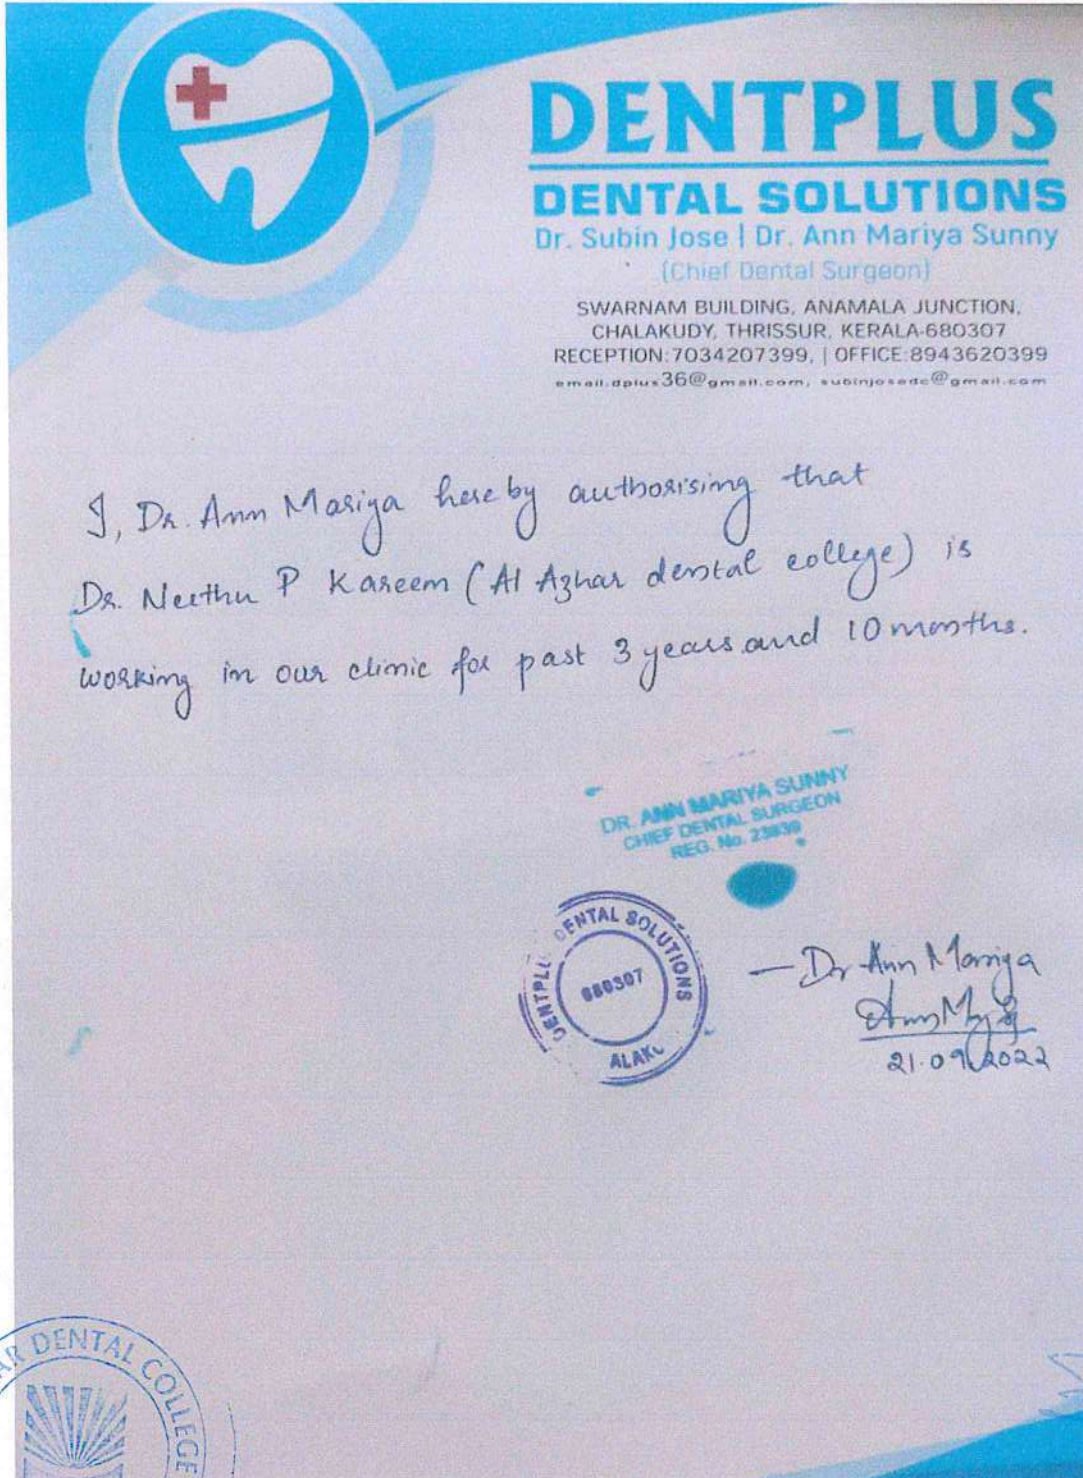 DENTPLUS
DENTAL SOLUTIONS
Dr. Subin Jose | Dr. Ann Mariya Sunny
(Chief Dental Surgeon)
SWARNAM BUILDING, ANAMALA JUNCTION,
CHALAKUDY, THRISSUR, KERALA-680307
RECEPTION:7034207399, | OFFICE:8943620399
email.dplus36@gmail.com, subinjosedc@gmail.com
I, Dr. Ann Mariya hereby authorising that
Dr. Neethu P Kareem (Al Azhar dental college) is
working in our clinic for past 3 years and 10 months.
DR. ANN MARIYA SUNNY
CHIEF DENTAL SURGEON
REG. No.
DENTAL SOLUTIONS
680307
— Dr Ann Mariya
21.09.2022
DENTAL COLLEGE